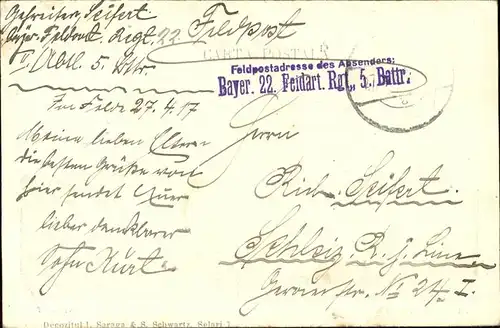 Gefreiter Seifert
Bayer. Feldart. Regt. 22
II. Abtl. 5. Bttr.
Feldpost
CARTA POSTALĂ
Feldpostadresse des Absenders:
Bayer. 22. Feldart. Rgt., 5. Battr.
Im Felde 27.4.17
Meine lieben Eltern
die besten Grüße von
hier sendet Euer
lieber dankbarer
Sohn Kurt
Herrn
Rich. Seifert
Schleiz R. j. Linie
Geraerstr. No 24 I.
Depozitul I. Saraga & S. Schwartz, Selari 7